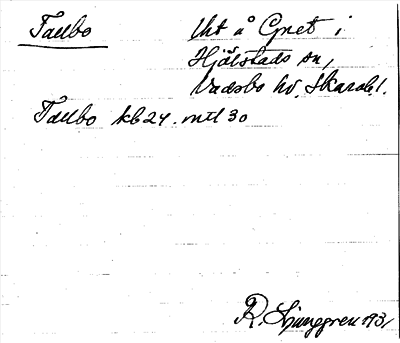 Tallbo
Uht å Gret i
Hjälstads sn,
Vadsbo hd. Skarab. l.
Tallbo kb 24. mtl 30
R. Ljunggren 1931